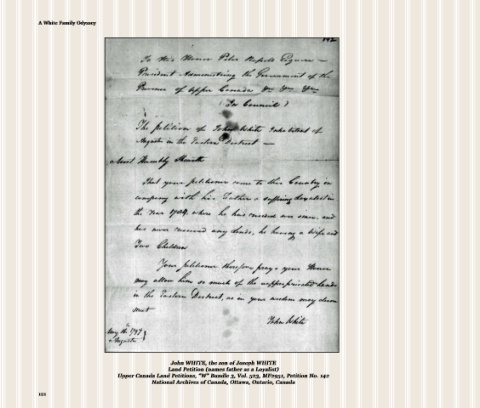 A White Family Odyssey
142
To His Honor Peter Russell Esquire —
President Administring the Government of the
Province of Upper Canada &c &c &c
(In Council)
The Petition of John White Inhabitant of
Augusta in the Eastern District —
Most Humbly Sheweth
That your petitioner came to this Country in
company with his Father a suffering Loyalist in
the Year 1784 where he has resided ever since, and
has never received any Lands, he having a Wife and
Two Children
Your petitioner therefore prays your Honor
may allow him so much of the unappropriated Lands
in the Eastern District, as in your wisdom may deem
meet
John White
Augusta
1797
John WHITE, the son of Joseph WHITE
Land Petition (names father as a Loyalist)
Upper Canada Land Petitions, "W" Bundle 3, Vol. 523, Petition No. 142
National Archives of Canada, Ottawa, Ontario, Canada
122